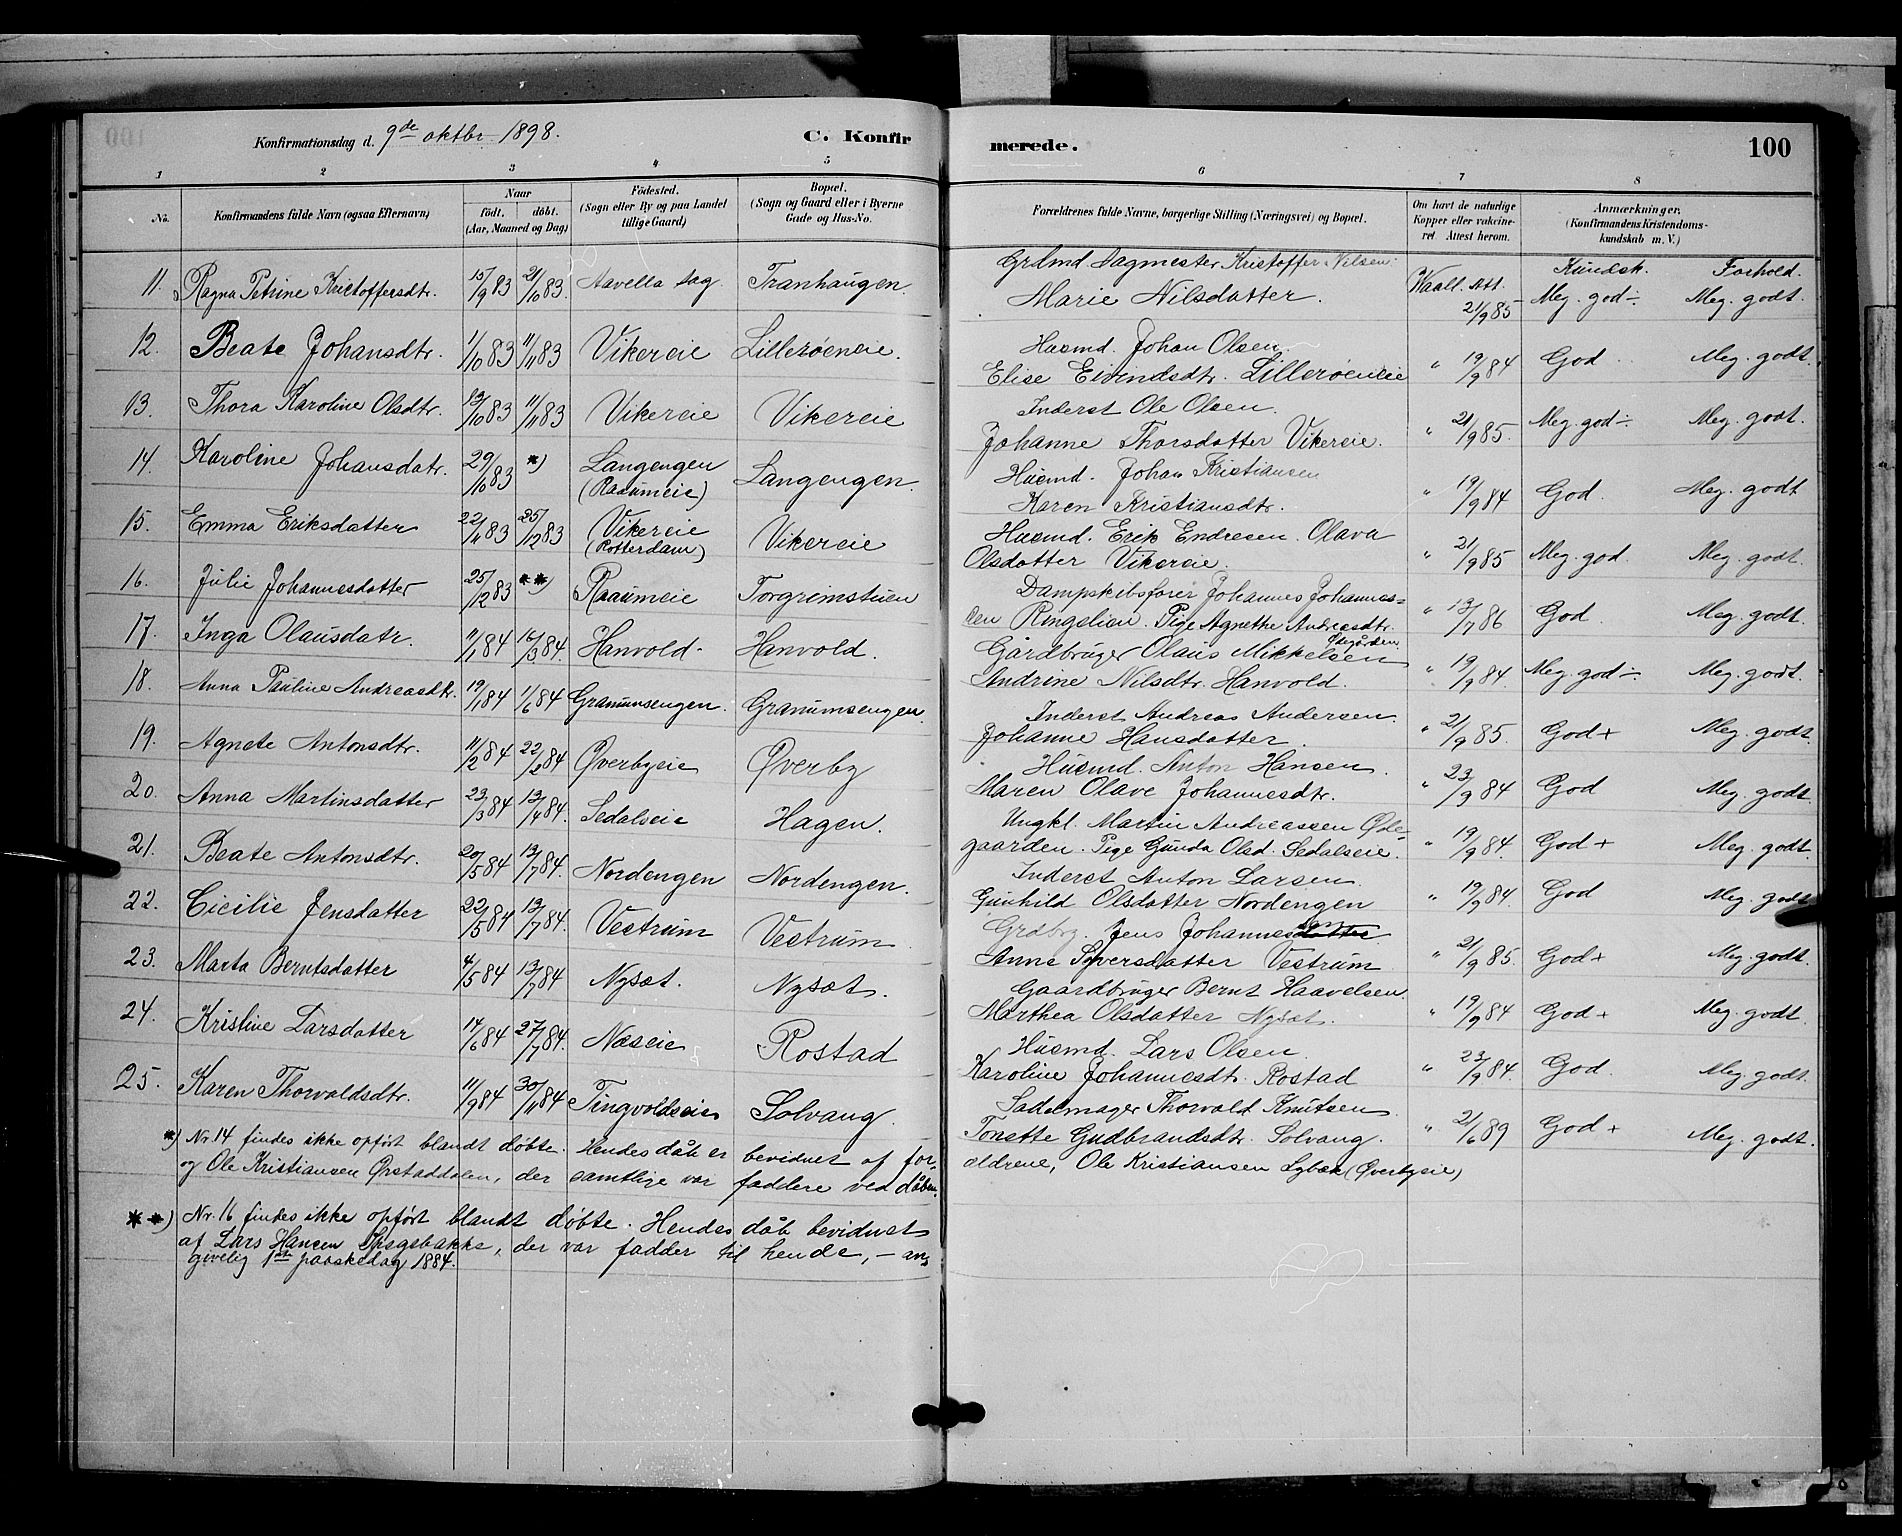 100
Konfirmationsdag d. 9de oktbr 1898.
C. Konfir
merede.
100
1 2 3 4 5 6 7 8
No.
Konfirmandens fulde Navn (ogsaa Efternavn)
Naar
født. døbt.
(Aar, Maaned og Dag)
Födested.
(Sogn eller By og paa Landet
tillige Gaard)
Bopæl.
(Sogn og Gaard eller i Byerne
Gade og Hus-No.
Forældrenes fulde Navne, borgerlige Stilling (Næringsvei) og Bopæl.
Om havt de naturlige
Kopper eller vakcine-
ret. Attest herom.
Anmærkninger.
(Konfirmandens Kristendoms-
kundskab m. V.)
Kundsk. Forhold.
11. Ragna Petrine Kristoffersdtr. 15/9 83 21/10 83. Aavella sag Tranhaugen
Grdmd. Sagmester Kristoffer Nilsen.
Marie Nilsdatter. Waall. att. 21/9 85 Meg. god ÷ Meg. godt.
12. Beate Johansdtr. 1/10 83 11/11 83 Vikereie Lillerøeneie.
Husmd. Johan Olsen.
Elise Eivindsdtr. Lillerøeneie " 19/9 84 God Meg. godt.
13. Thora Karoline Olsdtr. 13/10 83 11/11 83 Vikereie Vikereie
Inderst Ole Olsen.
Johanne Thorsdatter Vikereie. " 21/9 85. Meg. god ÷. Meg. godt.
14. Karoline Johansdatr. 29/10 83 *) Langengen Langengen.
(Raaumeie)
Husmd. Johan Kristiansen
Karen Kristiansdtr. " 19/9 84 God. Meg. godt
15. Emma Eriksdatter 22/11 83 25/12 83 Vikereie Vikereie
(Rotterdam)
Husmd. Erik Endresen. Olava
Olsdatter Vikereie. " 21/9 85 Meg. god. Meg. godt.
16. Julie Johannesdatter 25/12 83 **) Raaumeie Torgrimstuen
Dampskibsfører Johannes Johannes=
sen Ringelien. Pige Agnethe Andreasdtr. " 13/7 86 God Meg. godt.
Ødegården
17. Inga Olausdatr. 11/1 84 16/3 84. Hanvold Hanvold.
Gårdbruger Olaus Mikkelsen
Andrine Nilsdtr. Hanvold. " 19/9 84. Meg. god ÷. Meg. godt.
18. Anna Pauline Andreasdtr. 19/1 84 1/6 84 Granumsengen. Granumsengen.
Inderst Andreas Andersen
Johanne Hansdatter. " 21/9 85. God + Meg. godt.
19. Agnete Antonsdtr. 11/2 84 22/2 84 Øverbyeie Øverby
Husmd. Anton Hansen.
Maren Olave Johannesdtr. " 23/9 84 God Meg. godt.
20. Anna Martinsdatter 23/3 84 13/4 84. Sedalseie Hagen.
Ungkl. Martin Andreassen Øde=
gaarden. Pige Gunda Olsd. Sedalseie. " 19/9 84. God + Meg. godt.
21. Beate Antonsdtr. 20/5 84 13/7 84. Nordengen Nordengen.
Inderst Anton Larsen.
Gunhild Olsdatter Nordengen " 19/9 84. God Meg. godt
22. Cicilie Jensdatter 22/5 84 13/7 84. Vestrum Vestrum
Grdbrg. Jens Johannesdatter sen
Anne Syversdatter Vestrum " 21/9 85. God + Meg. godt.
23. Marta Berntsdatter 4/5 84 13/7 84 Nysæt. Nysæt.
Gaardbruger Bernt Haavelsen.
Marthea Olsdatter Nysæt. " 19/9 84 God + Meg. godt.
24. Kristine Larsdatter 14/6 84 27/7 84. Næseie Rostad
Husmd. Lars Olsen.
Karoline Johannesdtr. Rostad " 23/9 84. God. Meg. godt.
25. Karen Thorvaldsdtr. 11/9 84 30/11 84 Tingvoldseie Solvang.
Sadelmager Thorvald Knutsen
Tonette Gudbrandsdtr. Solvang. " 21/6 89 God + Meg. godt.
*) Nr. 14 findes ikke opført blandt døbte. Hendes dåb er bevidnet af for-
ældrene, Ole Kristiansen Lybæk (Øverbyeie)
og Ole Kristiansen Ørstaddalen, der samtlige var faddere ved dåben.
**) Nr. 16 findes ikke opført blandt døbte. Hendes dåb bevidnet
af Lars Hansen, der var fadder til hende, – an=
givelig 1ste paaskedag 1884.